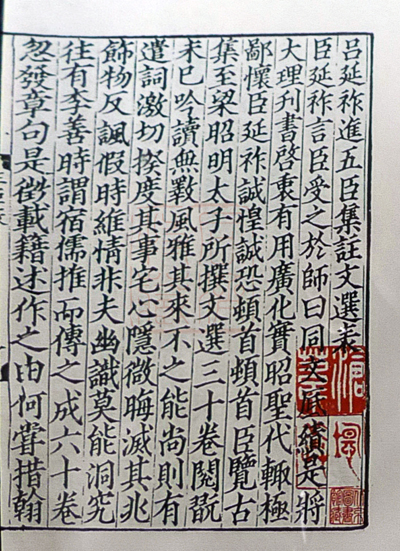 呂延祚進五臣集註文選表
臣延祚言臣受之於師曰同文厎績是將
大理刊書啓衷有用廣化實昭聖代輙極
鄙懷臣延祚誠惶誠恐頓首頓首臣覽古
集至梁昭明太子所撰文選三十卷閱翫
未已吟讀無斁風雅其來不之能尚則有
遣詞激切揆度其事宅心隱微晦滅其兆
飾物反諷假時維情非夫幽識莫能洞究
往有李善時謂宿儒推而傳之成六十卷
忽發章句是徵載籍述作之由何嘗措翰